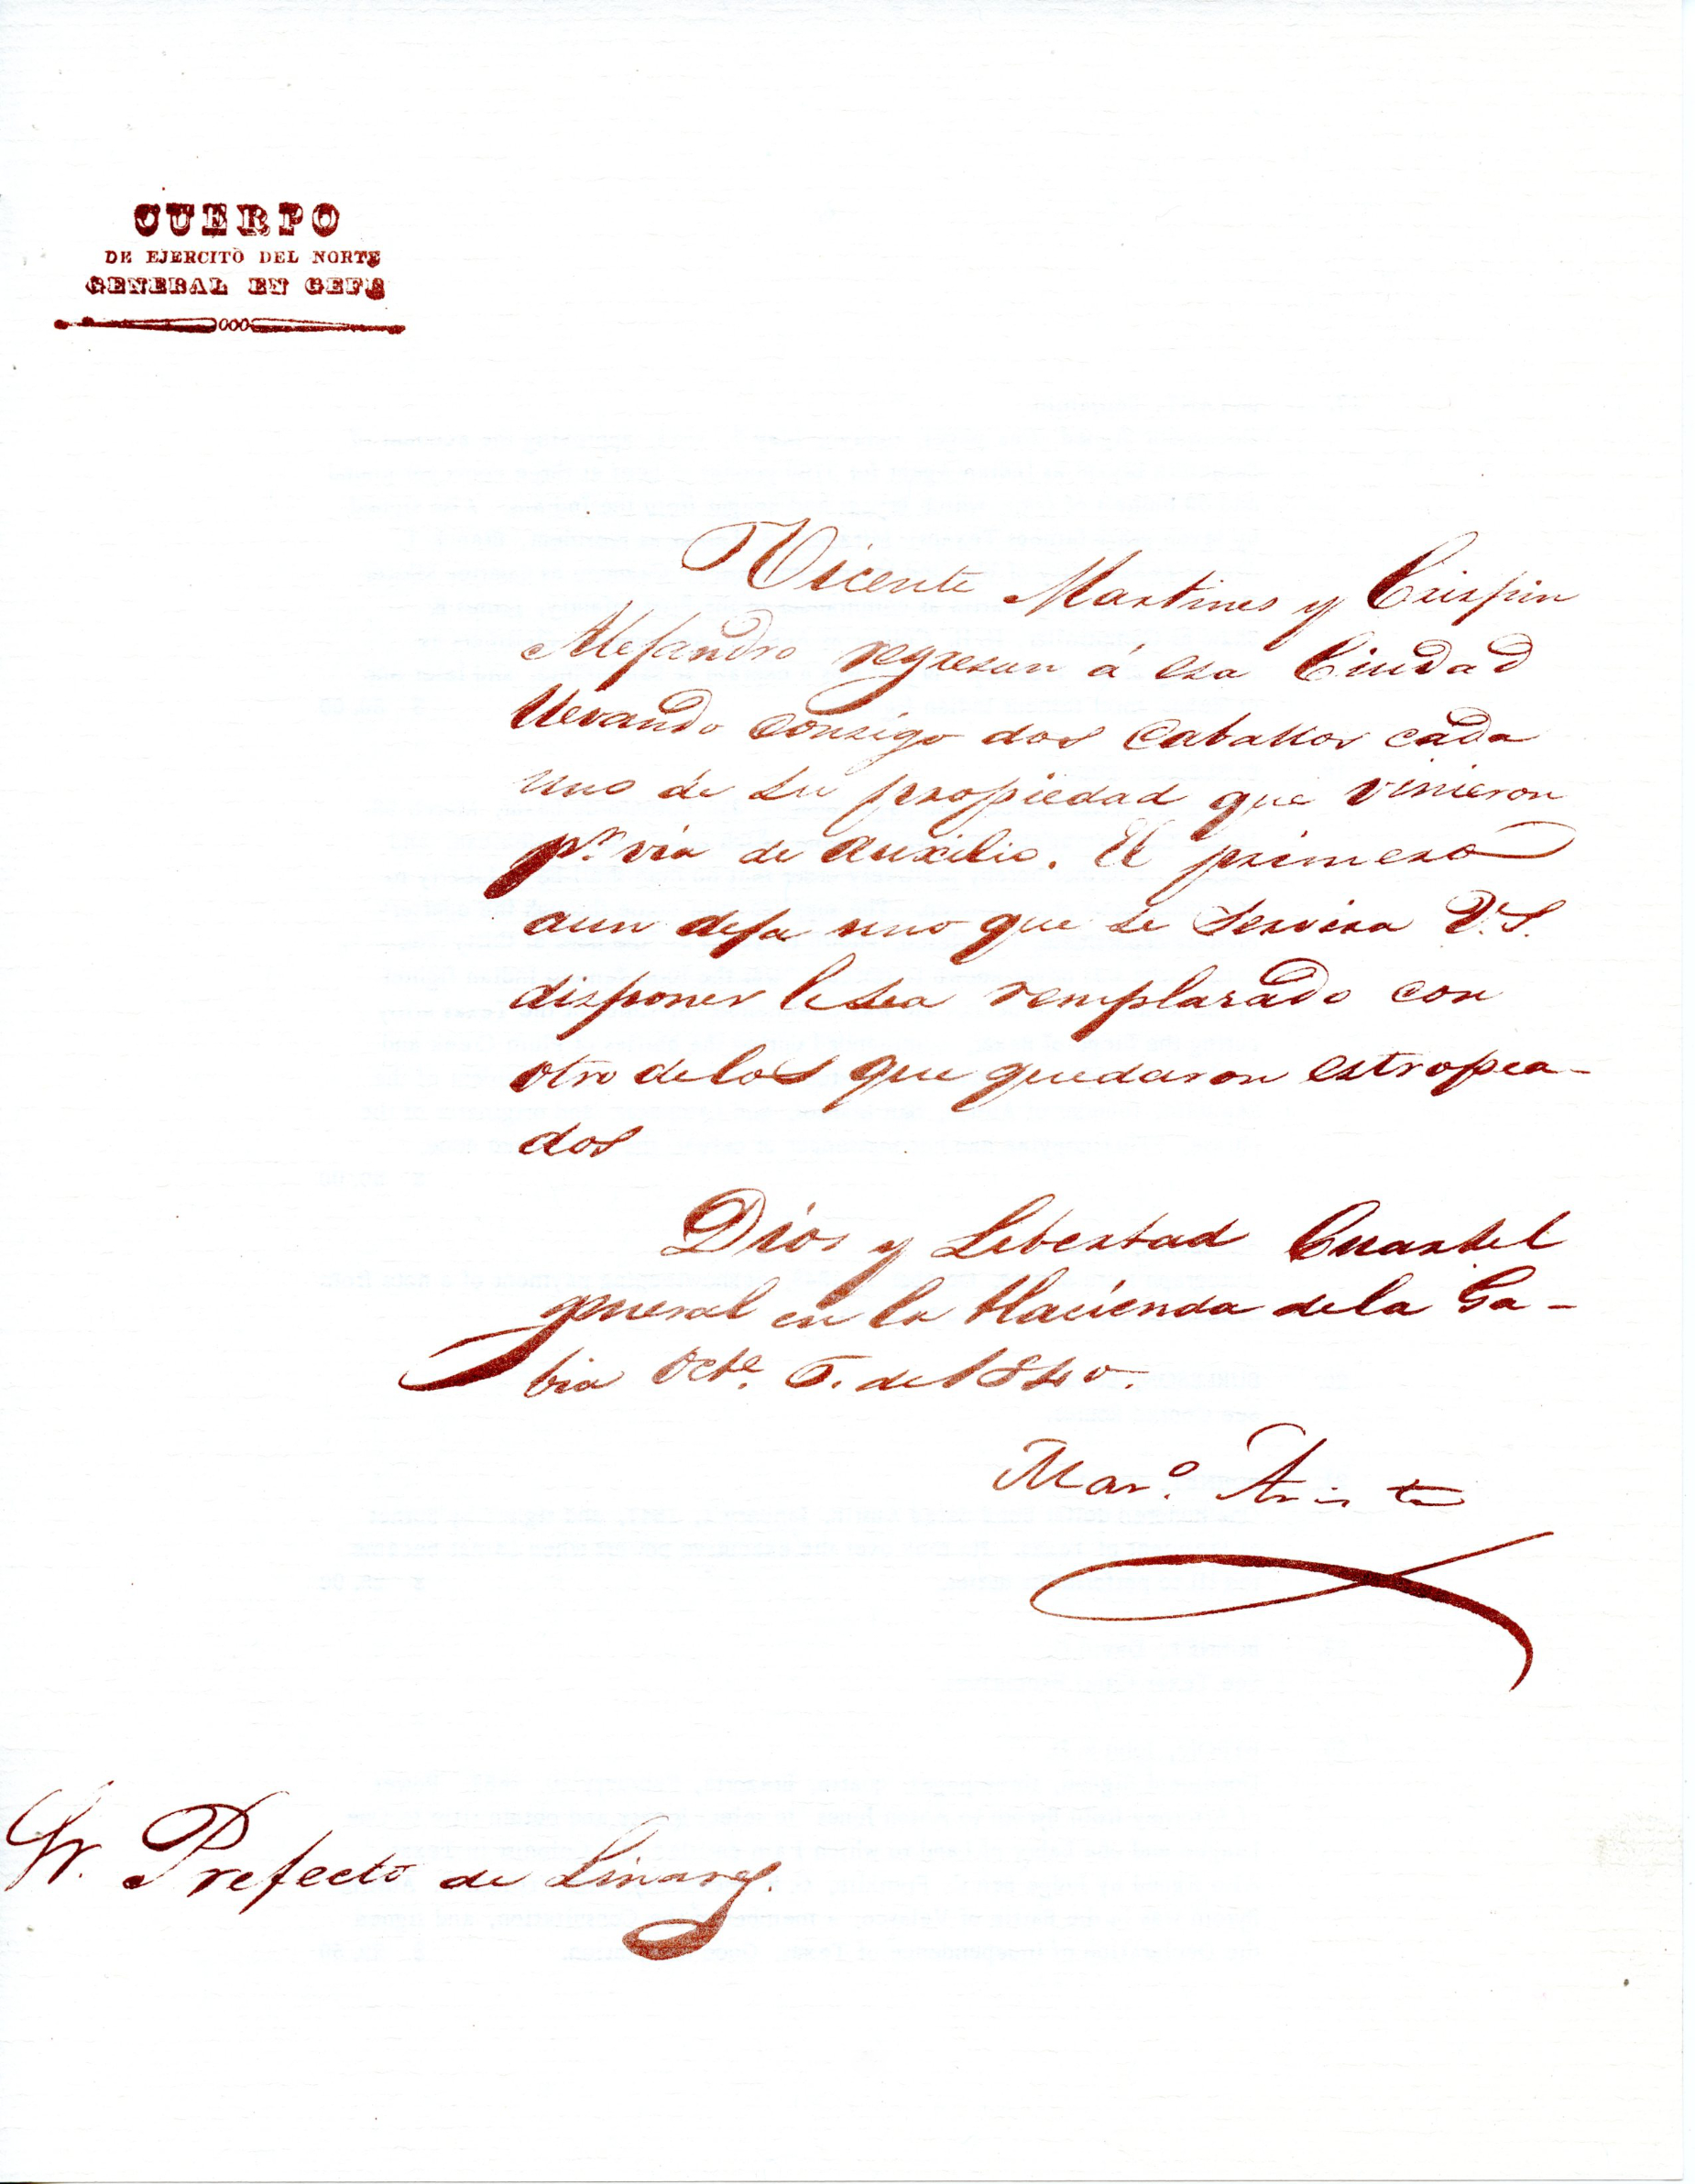 CUERPO
DE EJERCITO DEL NORTE
GENERAL EN GEFE
Vicente Martines y Crispin
Alejandro regresan á esa Ciudad
llevando consigo dos caballos cada
uno de su propiedad que vinieron
pr. via de auxilio. El primero
aun deja uno que se servira V.S.
disponer le sea remplasado con
otro de los que quedaron estropea-
dos
Dios y Libertad Cuartel
general en la Hacienda de la Ga-
bia Octe. 5. de 1840.
Maro. Arista
Sr. Prefecto de Linares.